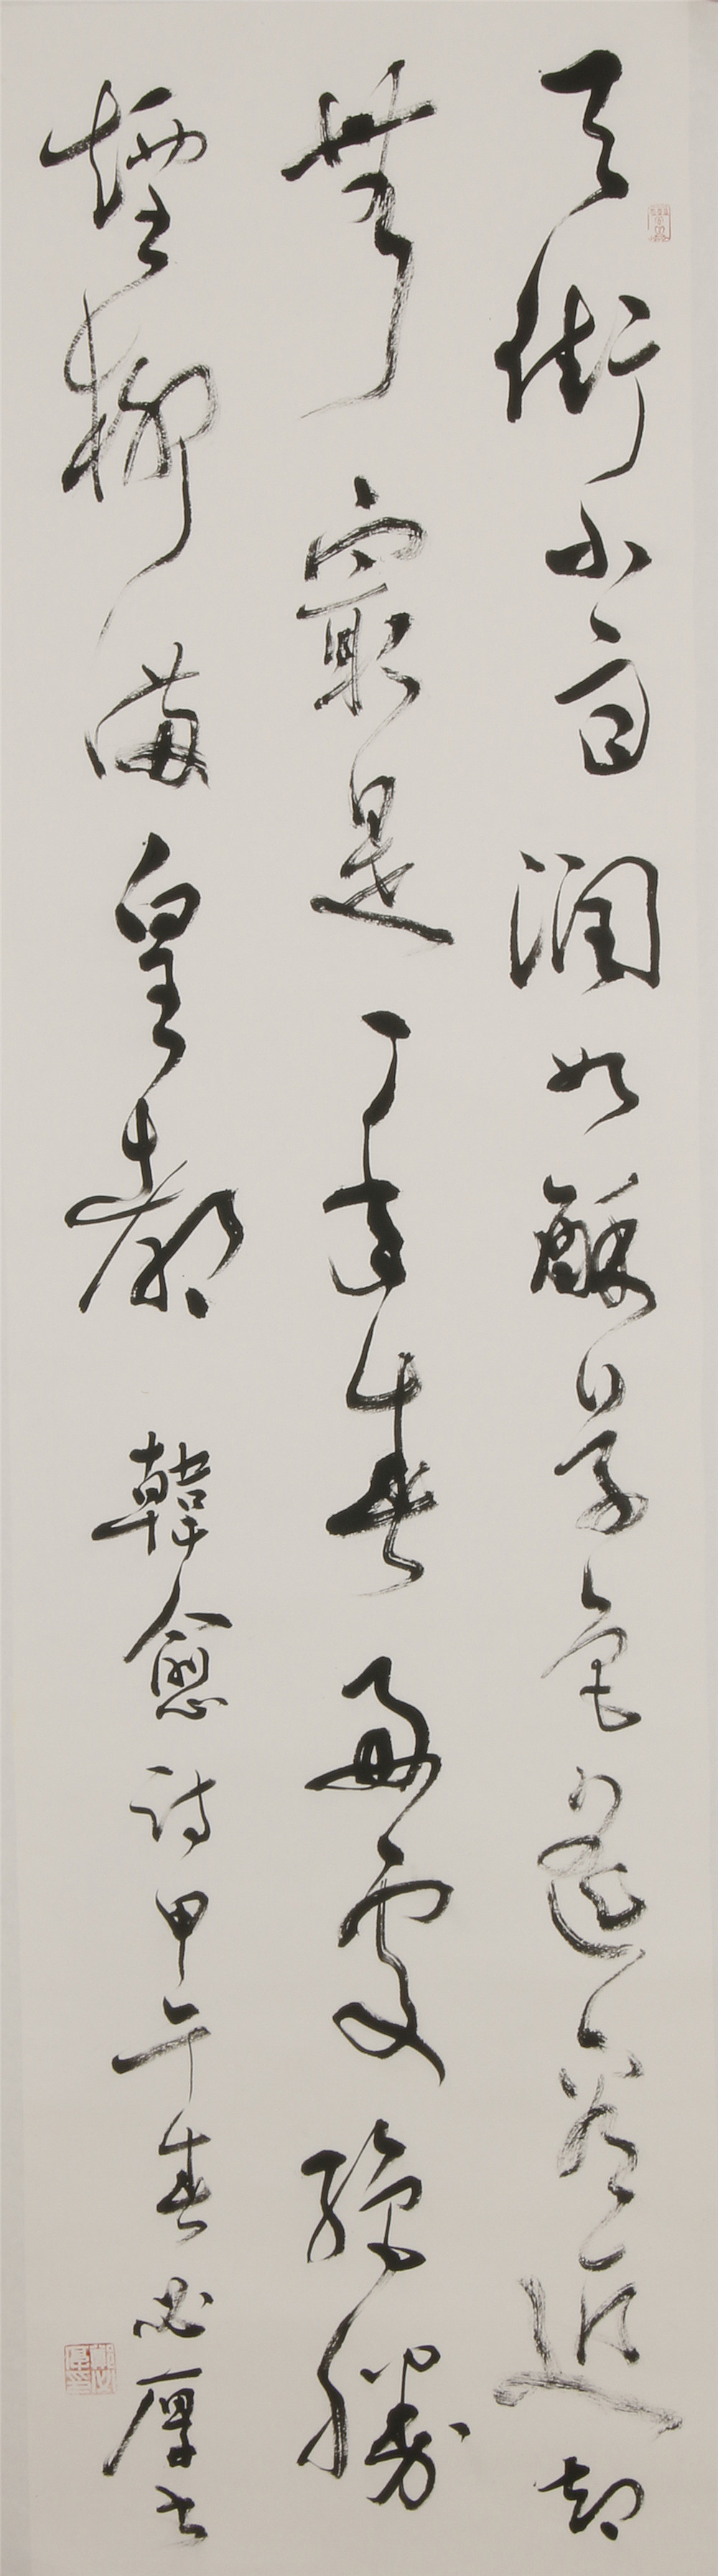 天街小雨潤如酥草色遙看近却
無最是一年春好處絕勝
煙柳滿皇都 韓愈詩甲午春必厚書